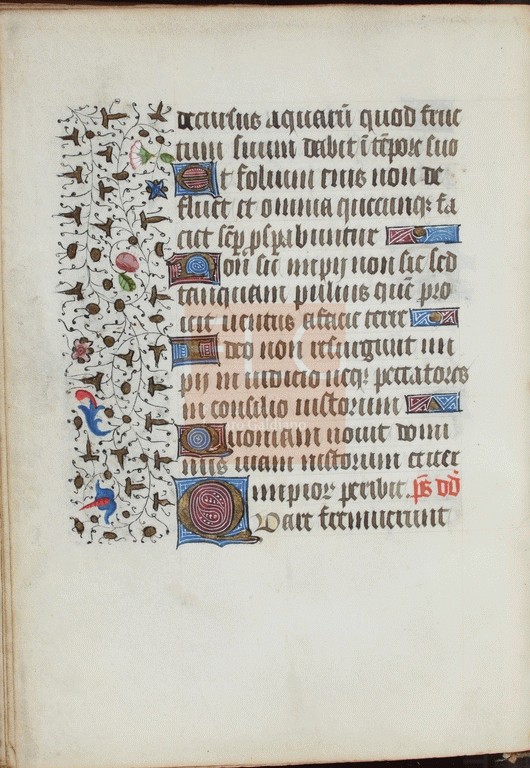 decursus aquarū quod fruc
tum suum dabit ī tēpore suo
Et folium eius non de
fluet et omnia quecunqꝫ fa
ciet sēp psꝑabuntur
Non sic impij non sic sed
tanquam puluis quē pro
icit uentus a facie terre
Ideo non resurgunt im
pij in iudicio neqꝫ peccatores
in consilio iustorum
Quoniam nouit domi
nus uiam iustorum et iter
impiorꝝ peribit. p̄s dd̄
Quare fremuerunt